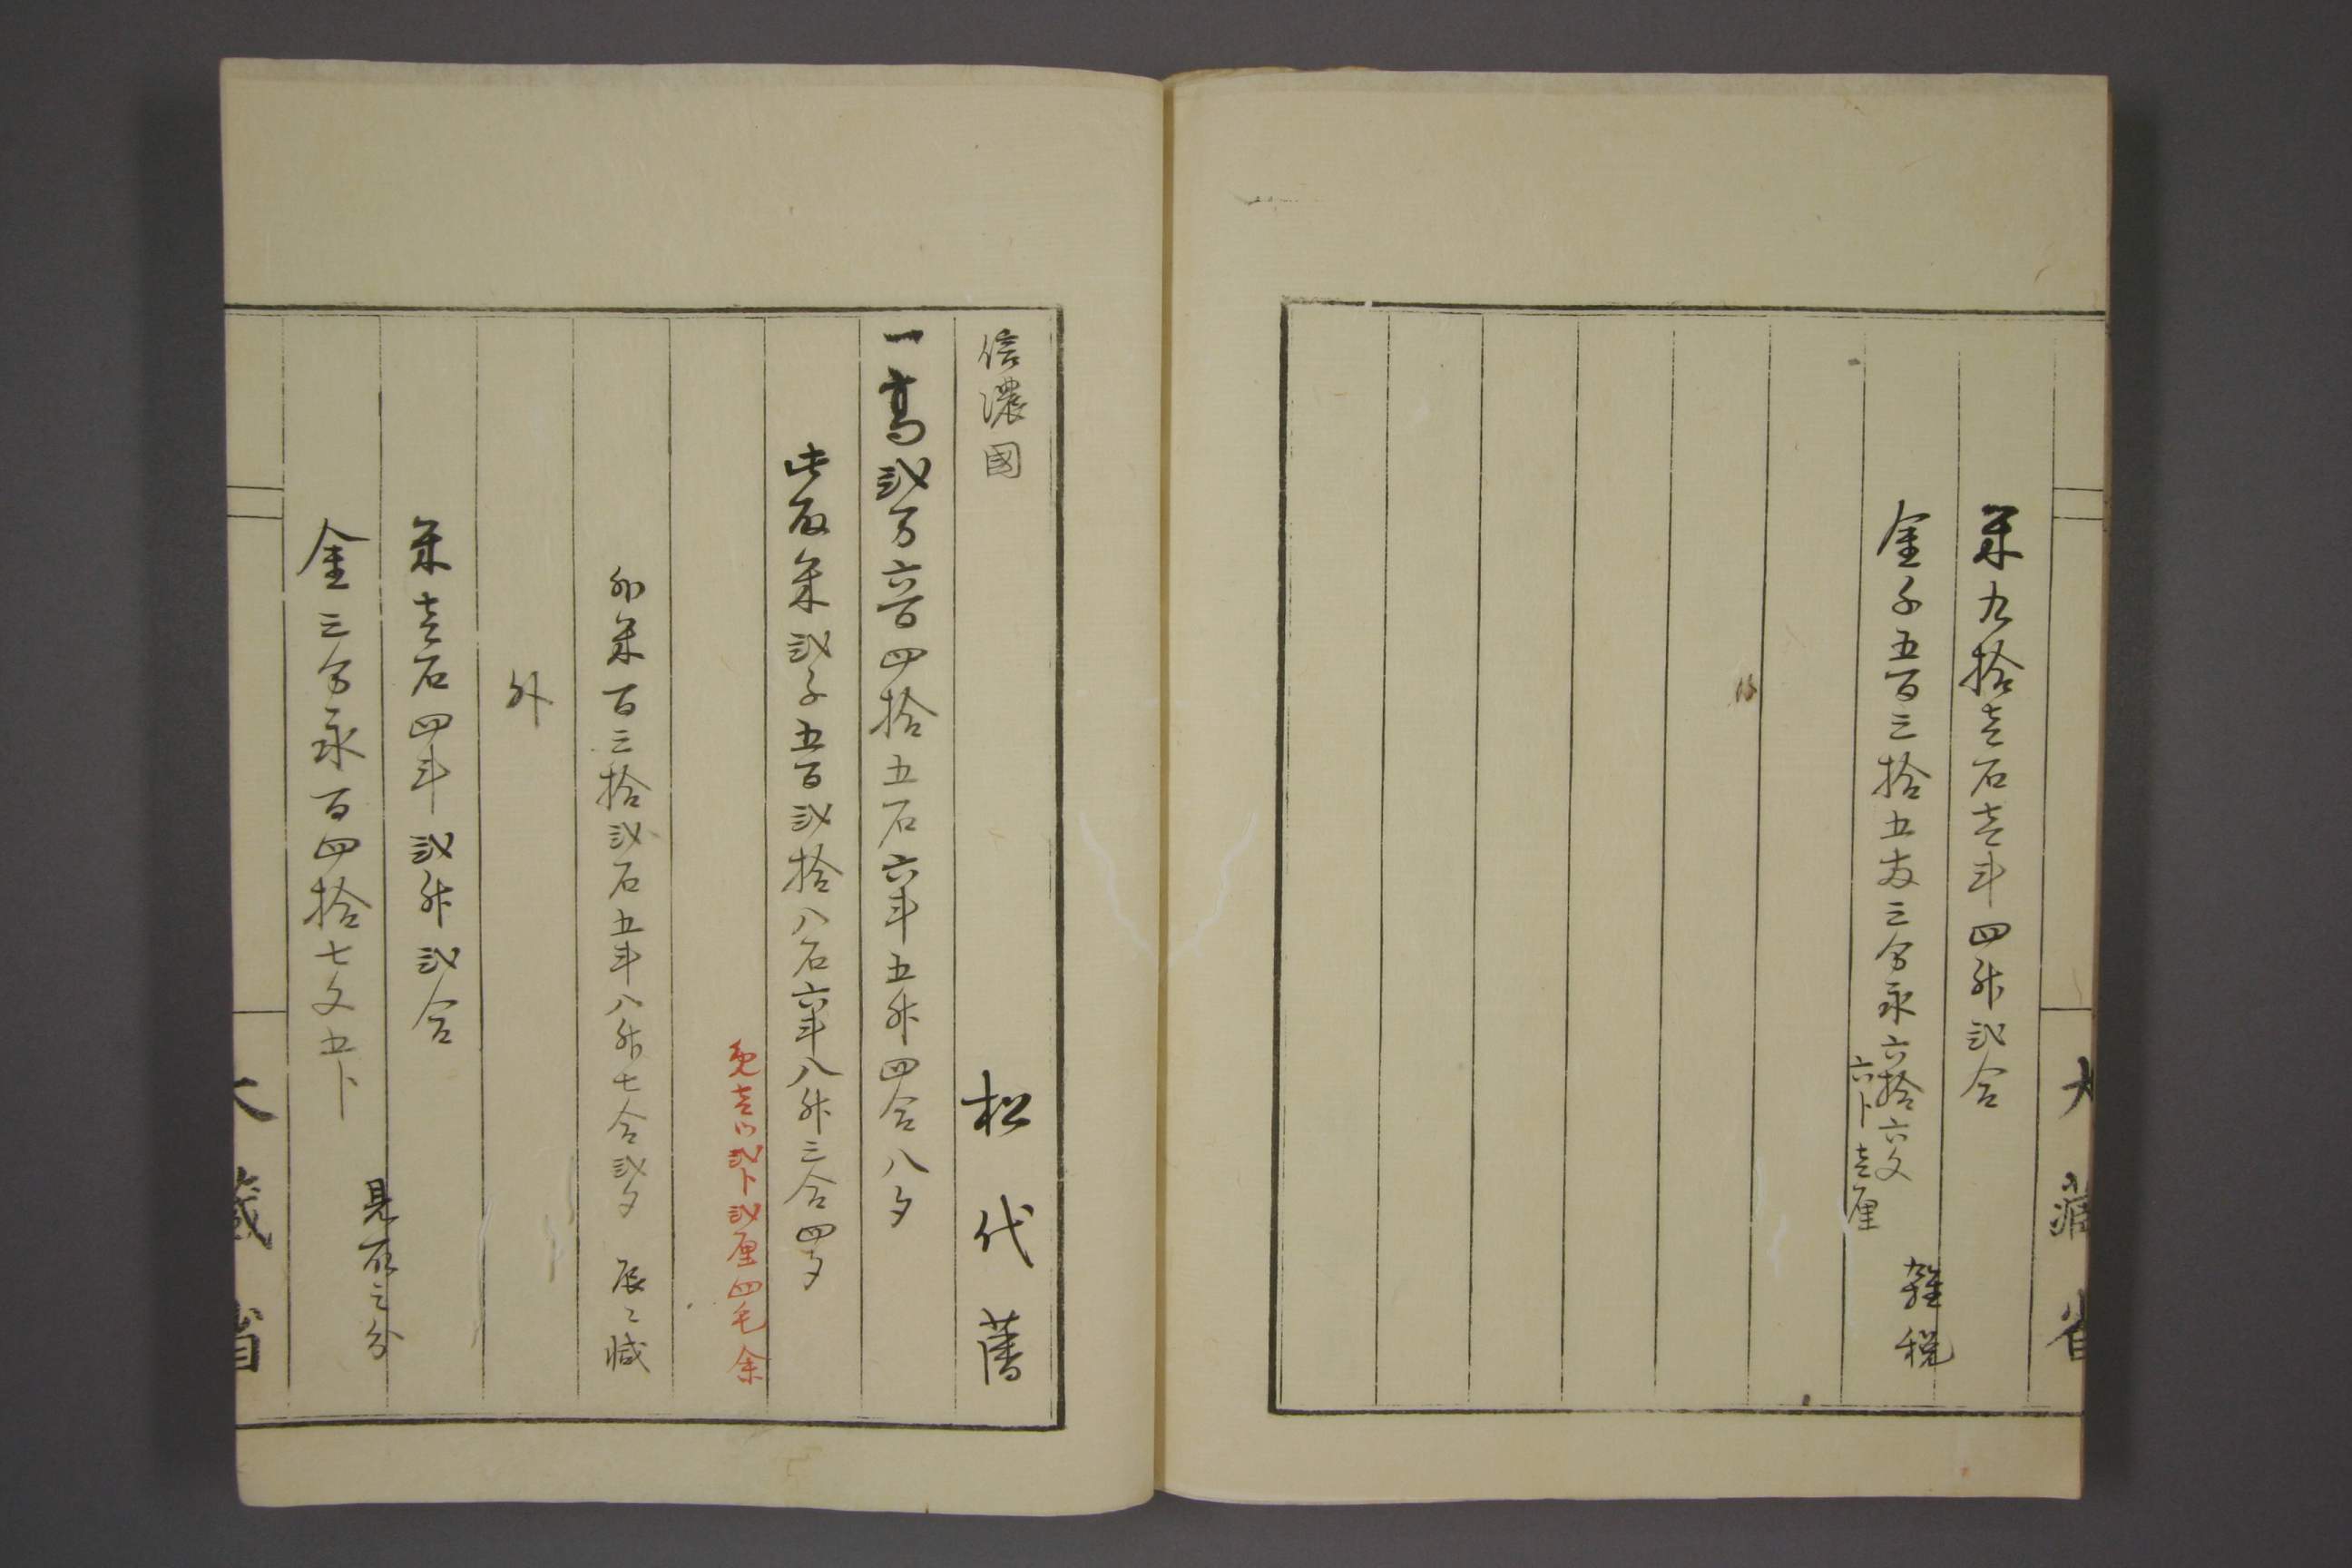 大藏省
米九拾壱石壱斗四升弐合
金千五百三拾五両三分永六拾六文
六卜壱厘
雑税
信濃國
松代藩
一高弐万六百四拾五石六斗五升四合八夕
此取米弐千五百弐拾八石六斗八升三合四夕
免壱ツ弐卜弐厘四毛余
卯米百三拾弐石五斗八升七合弐夕 辰ニ減
外
米壱石四斗弐升弐合
金三分永百四拾七文五卜
見取之分
大藏省